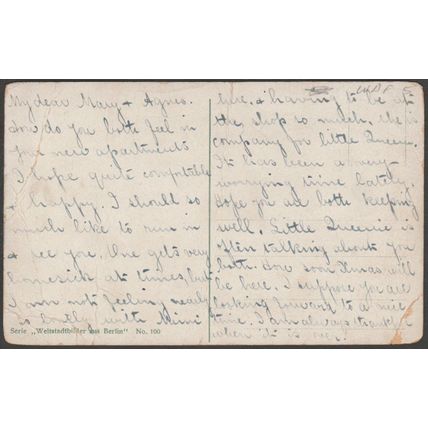 My dear Mary & Agnes.
How do you both feel in
your new apartments
I hope quite comfortable
& happy. I should so
much like to run in
& see you. One gets very
homesick at times, but
I am not feeling nearly
so lonely with Mimi
Serie „Weltstadtbilder aus Berlin" No. 100
here. & having to be at
the shop so much. She is
company for little Queenie.
It has been a very
worrying time lately.
Hope you are both keeping
well. Little Queenie is
often talking about you
both. How soon Xmas will
be here. I suppose you are
looking forward to a nice
time. I am always thankful
when it is over!